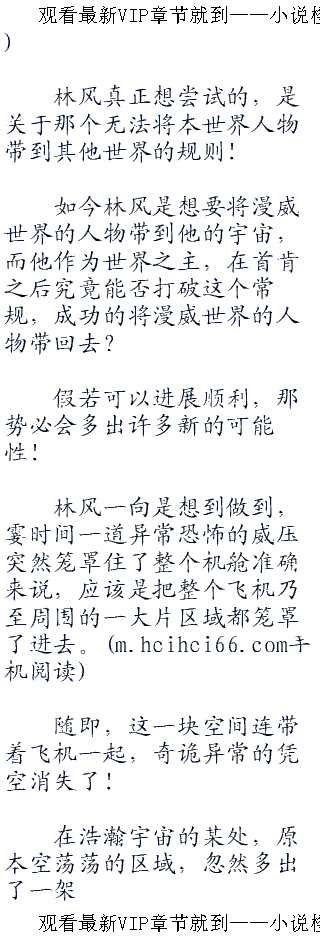 观看最新VIP章节就到——小说检
)
林风真正想尝试的，是
关于那个无法将本世界人物
带到其他世界的规则！
如今林风是想要将漫威
世界的人物带到他的宇宙，
而他作为世界之主，在首肯
之后究竟能否打破这个常
规，成功的将漫威世界的人
物带回去？
假若可以进展顺利，那
势必会多出许多新的可能
性！
林风一向是想到做到，
霎时间一道异常恐怖的威压
突然笼罩住了整个机舱准确
来说，应该是把整个飞机乃
至周围的一大片区域都笼罩
了进去。(m.hcihci66.com手
机阅读)
随即，这一块空间连带
着飞机一起，奇诡异常的凭
空消失了！
在浩瀚宇宙的某处，原
本空荡荡的区域，忽然多出
了一架
观看最新VIP章节就到——小说检